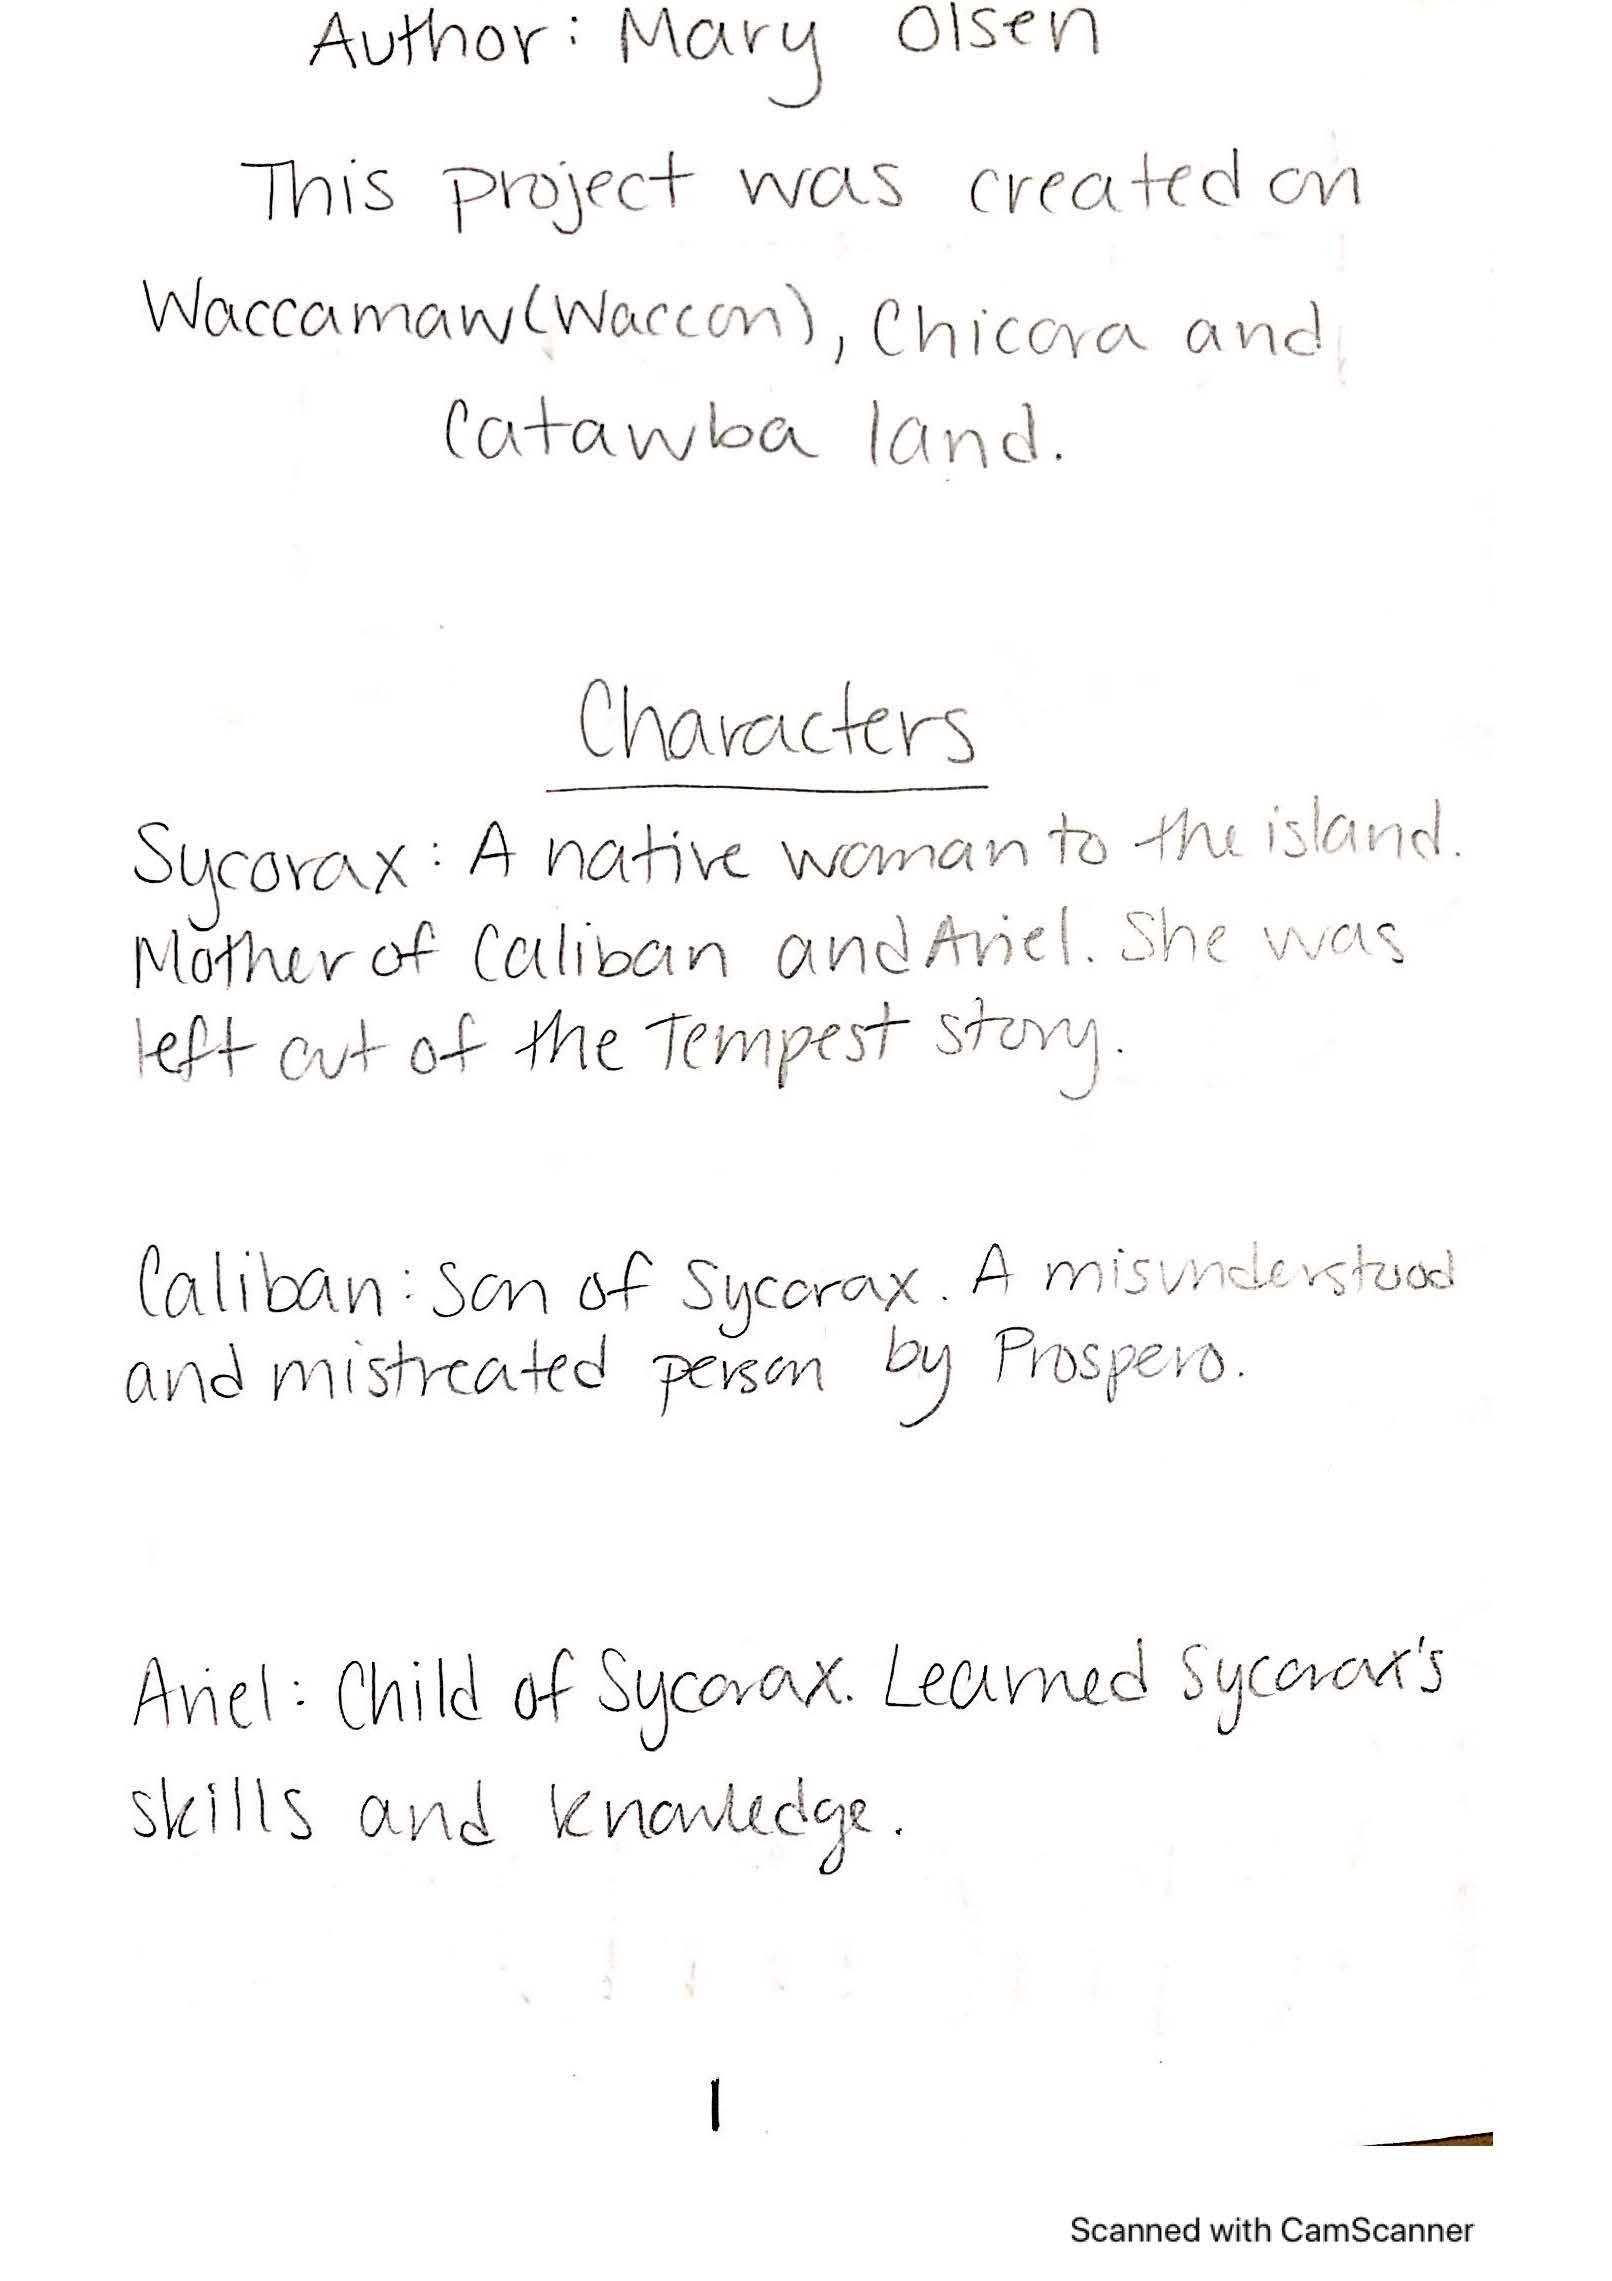 Author: Mary Olsen
This project was created on
Waccamaw(Waccon), Chicora and
Catawba land.
Characters
Sycorax: A native woman to the island.
Mother of Caliban and Ariel. She was
left out of the Tempest story.
Caliban: Son of Sycorax. A misunderstood
and mistreated person by Prospero.
Ariel: Child of Sycorax. Learned Sycorax's
skills and knowledge.
1
Scanned with CamScanner